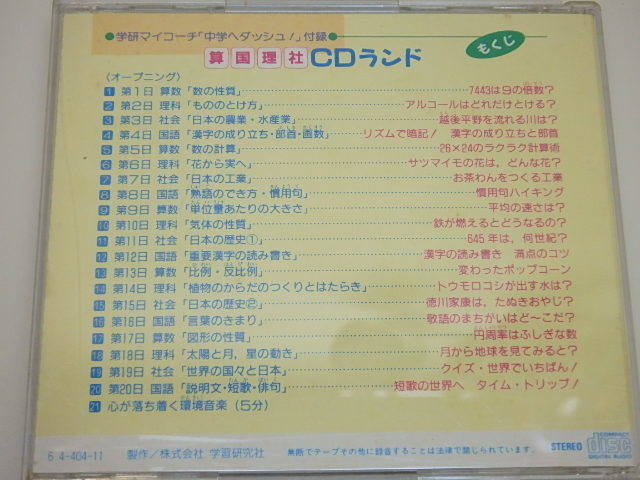 ●学研マイコーチ「中学へダッシュ!」付録●
算国理社CDランド
もくじ
〈オープニング〉
1 第1日 算数「数の性質」………7443は9の倍数?
2 第2日 理科「もののとけ方」………アルコールはどれだけとける?
3 第3日 社会「日本の農業・水産業」………越後平野を流れる川は?
4 第4日 国語「漢字の成り立ち・部首・画数」………リズムで暗記! 漢字の成り立ちと部首
5 第5日 算数「数の計算」………26×24のラクラク計算術
6 第6日 理科「花から実へ」………サツマイモの花は，どんな花?
7 第7日 社会「日本の工業」………お茶わんをつくる工業
8 第8日 国語「熟語のでき方・慣用句」………慣用句ハイキング
9 第9日 算数「単位量あたりの大きさ」………平均の速さは?
10 第10日 理科「気体の性質」………鉄が燃えるとどうなるの?
11 第11日 社会「日本の歴史①」………645年は，何世紀?
12 第12日 国語「重要漢字の読み書き」………漢字の読み書き 満点のコツ
13 第13日 算数「比例・反比例」………変わったポップコーン
14 第14日 理科「植物のからだのつくりとはたらき」………トウモロコシが出す水は?
15 第15日 社会「日本の歴史②」………徳川家康は，たぬきおやじ?
16 第16日 国語「言葉のきまり」………敬語のまちがいはど〜こだ?
17 第17日 算数「図形の性質」………円周率はふしぎな数
18 第18日 理科「太陽と月，星の動き」………月から地球を見てみると?
19 第19日 社会「世界の国々と日本」………クイズ・世界でいちばん!
20 第20日 国語「説明文・短歌・俳句」………短歌の世界へ タイム・トリップ!
21 心が落ち着く環境音楽(5分)
6 4-404-11 製作／株式会社 学習研究社 無断でテープその他に録音することは法律で禁じられています。 STEREO COMPACT disc DIGITAL AUDIO